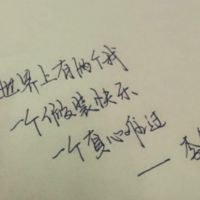 世界上有两个我
一个假装快乐
一个真心难过
——李